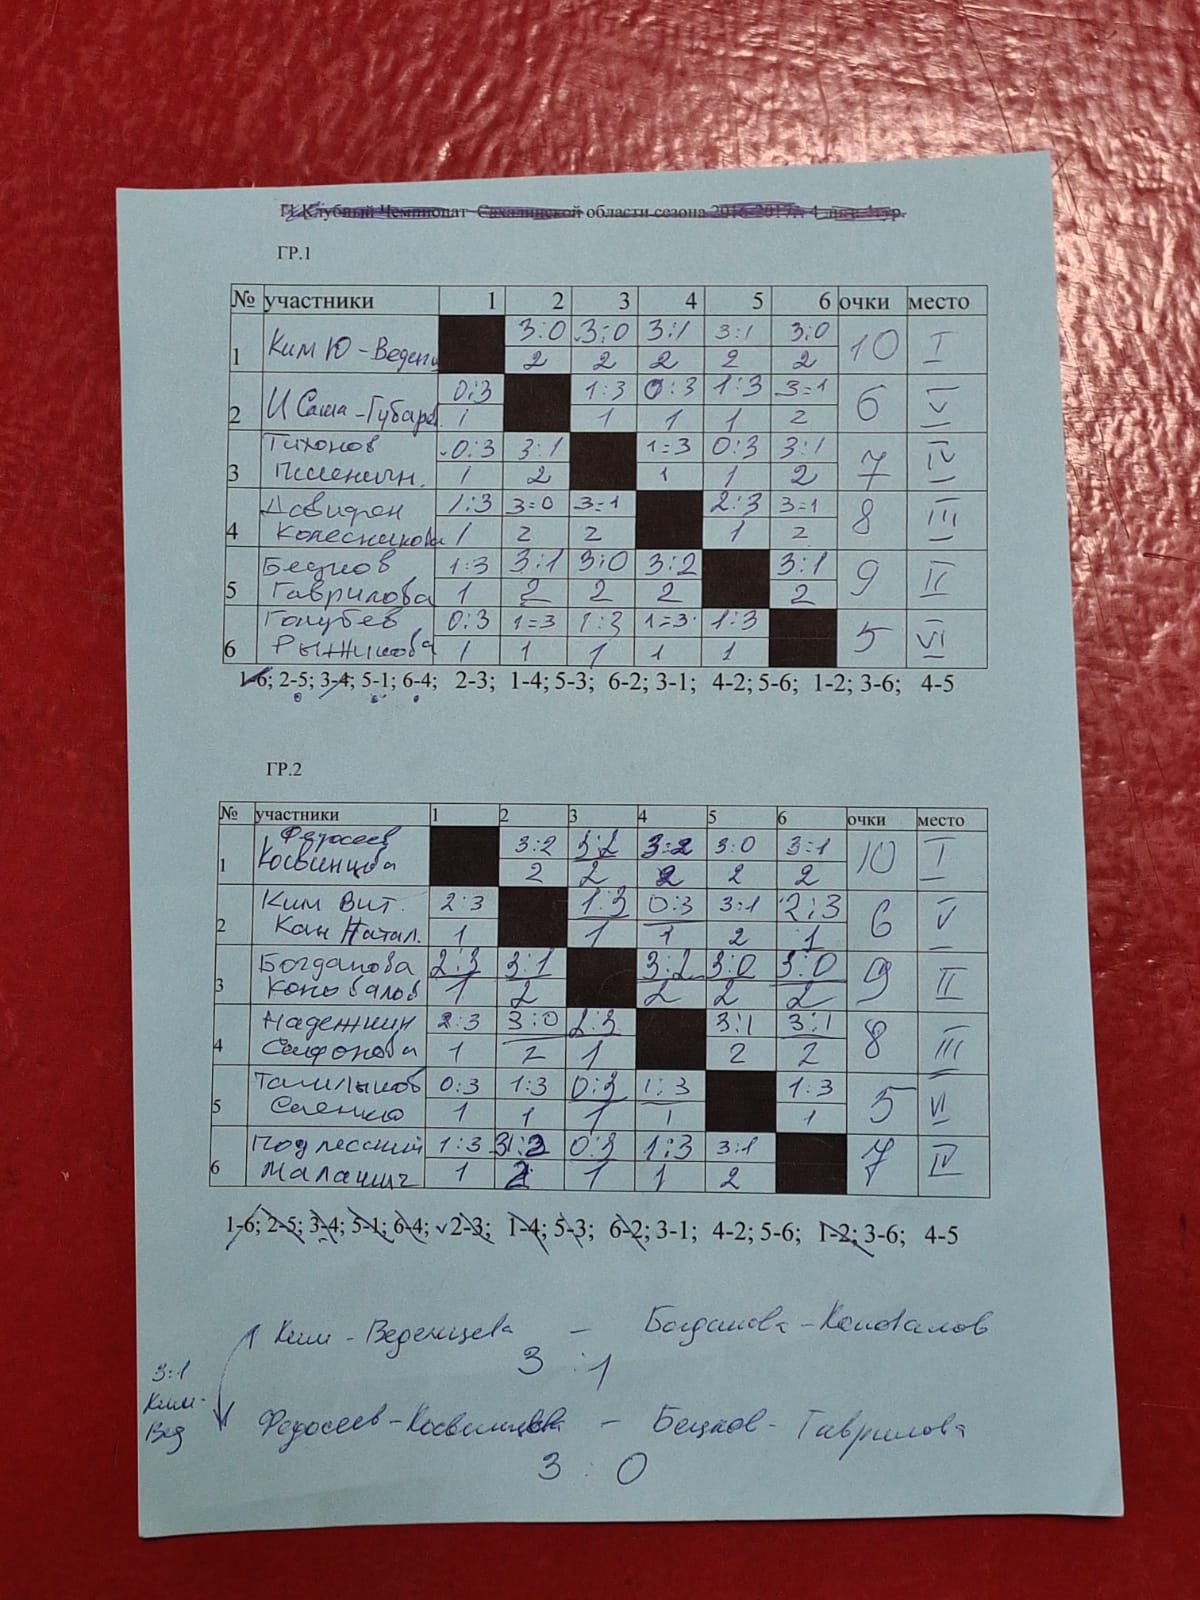 Г1 Клубный Чемпионат Сахалинской области сезона 2016-2017гг 4 лига 4тур.
ГР.1
№ участники 1 2 3 4 5 6 очки место
1 Ким Ю - Веденц 3:0 3:0 3:1 3:1 3:0 10 I
2 2 2 2 2
2 И Саша - Губарев 0:3 1:3 0:3 1:3 3:1 6 V
1 1 1 1 2
3 Тихонов 0:3 3:1 1:3 0:3 3:1 7 IV
Пшеничн. 1 2 1 1 2
4 Давидян 1:3 3:0 3:1 2:3 3:1 8 III
Колесникова 1 2 2 1 2
5 Бецков 1:3 3:1 3:0 3:2 3:1 9 II
Гаврилова 1 2 2 2 2
6 Голубев 0:3 1:3 1:3 1:3 1:3 5 VI
Рыжикова 1 1 1 1 1
1-6; 2-5; 3-4; 5-1; 6-4; 2-3; 1-4; 5-3; 6-2; 3-1; 4-2; 5-6; 1-2; 3-6; 4-5
ГР.2
№ участники 1 2 3 4 5 6 очки место
1 Федосеев 3:2 3:2 3:2 3:0 3:1 10 I
Косвинцева 2 2 2 2 2
2 Ким Вит. 2:3 1:3 0:3 3:1 2:3 6 V
Кан Натал. 1 1 1 2 1
3 Богданова 2:3 3:1 3:2 3:0 3:0 9 II
Коновалов 1 2 2 2 2
4 Надежкин 2:3 3:0 2:3 3:1 3:1 8 III
Сафонова 1 2 1 2 2
5 0:3 1:3 0:3 1:3 1:3 5 VI
Саенко 1 1 1 1 1
6 Подлесный 1:3 3:2 0:3 1:3 3:1 7 IV
1 2 1 1 2
1-6; 2-5; 3-4; 5-1; 6-4; 2-3; 1-4; 5-3; 6-2; 3-1; 4-2; 5-6; 1-2; 3-6; 4-5
Ким - Веденцева – Богданова - Коновалов
3 : 1
3:1
Ким -
Вед
Федосеев - Косвинцева – Бецков - Гаврилова
3 : 0